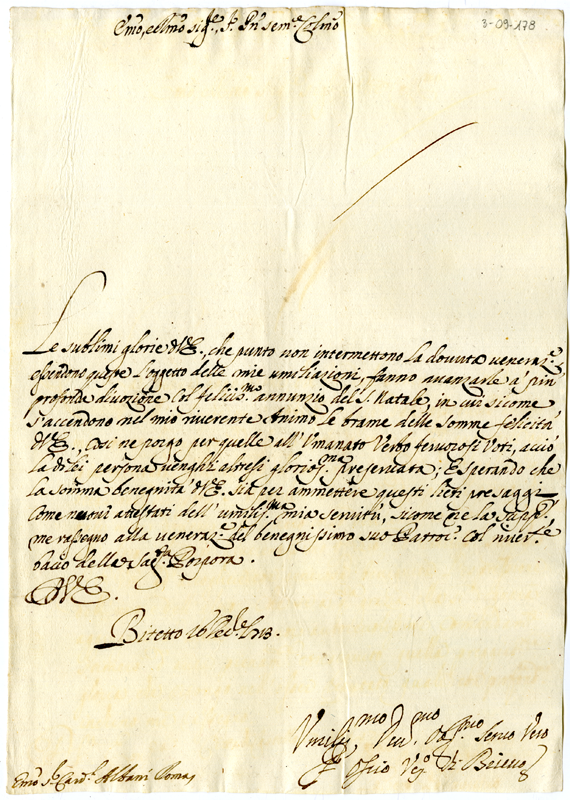 3-09-178
Emo, e Rmo Sig.re, S.r Pn͠ Sem.e Colmo
Le sublimi glorie di V.E., che punto non intermettono la dovuta veneraz.e,
essendono queste l'oggetto delle mie umiliazioni, fanno avanzarle à piu
profonda divozione Col felicis.mo annunzio del S. Natale, in cui sicome
s'accendono nel mio riverente Animo le brame delle somme felicità
di V.E., Cosi ne porgo per quelle all'Umanato Verbo fervorosi Voti, acciò
la di lei persona venghi altresi glorios.ma preservata; E sperando che
la somma benegnità di V.E. sia per ammettere questi lieti presaggi
Come nuovi attestati dell'umilis.ma mia servitù, sicome ne la supp.co,
me rassegno alla veneraz.e del benegnissimo suo Patroc.o Col river.te
bacio della Sac.a Porpora.
D.V.E.
Bitetto 16 Xbre 1713.
Umilis.mo Dev.mo Oss.mo Servo Vero
Vo
Emo S.r Card.l Albani Roma